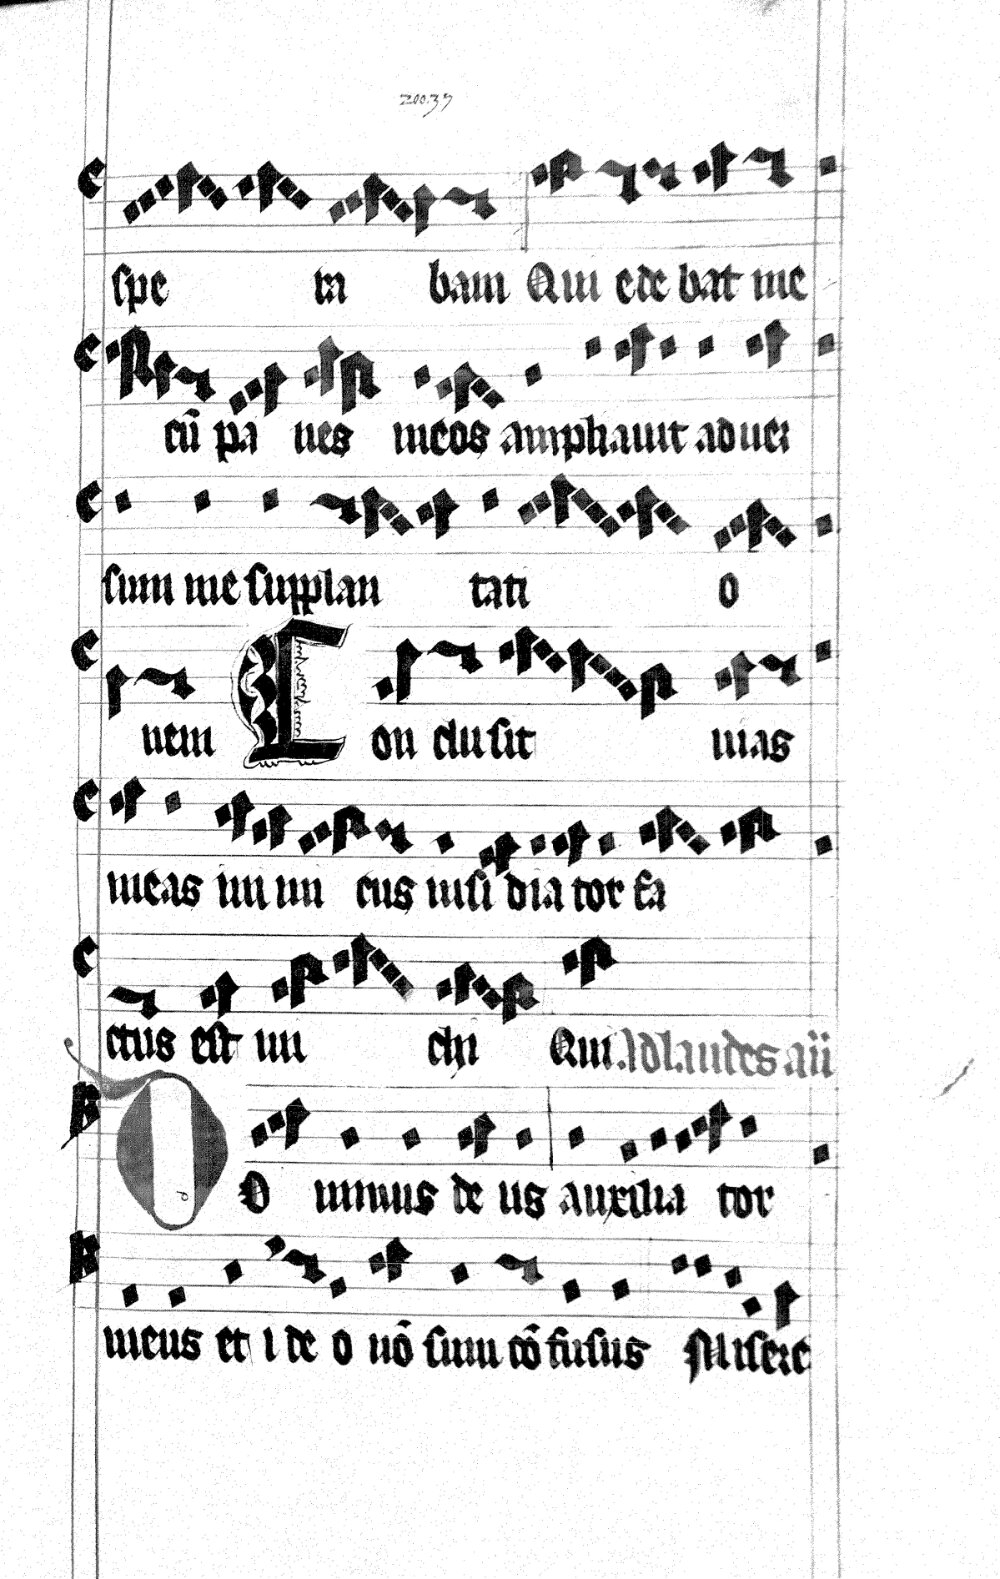 200.37
spe ta bam Qui ede bat me
cū pa nes meos ampliauit aduer
sum me supplan tati o
nem Con clu sit uias
meas in im cus insi dia tor fa
ctus est mi chi Qui. Ad laudes añ
Do minus de us auxilia tor
meus et i de o nō sum cō fusus Misere